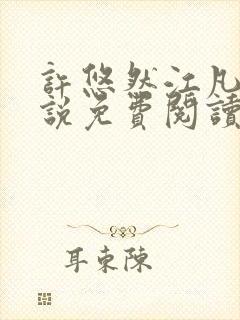 許悠然江凡
說免費閱讀
耳東陳